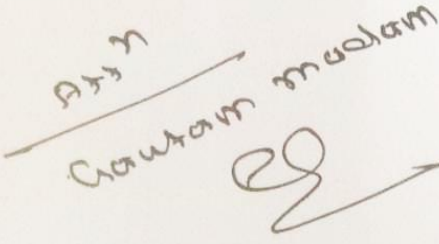 Attn
Gautam madam